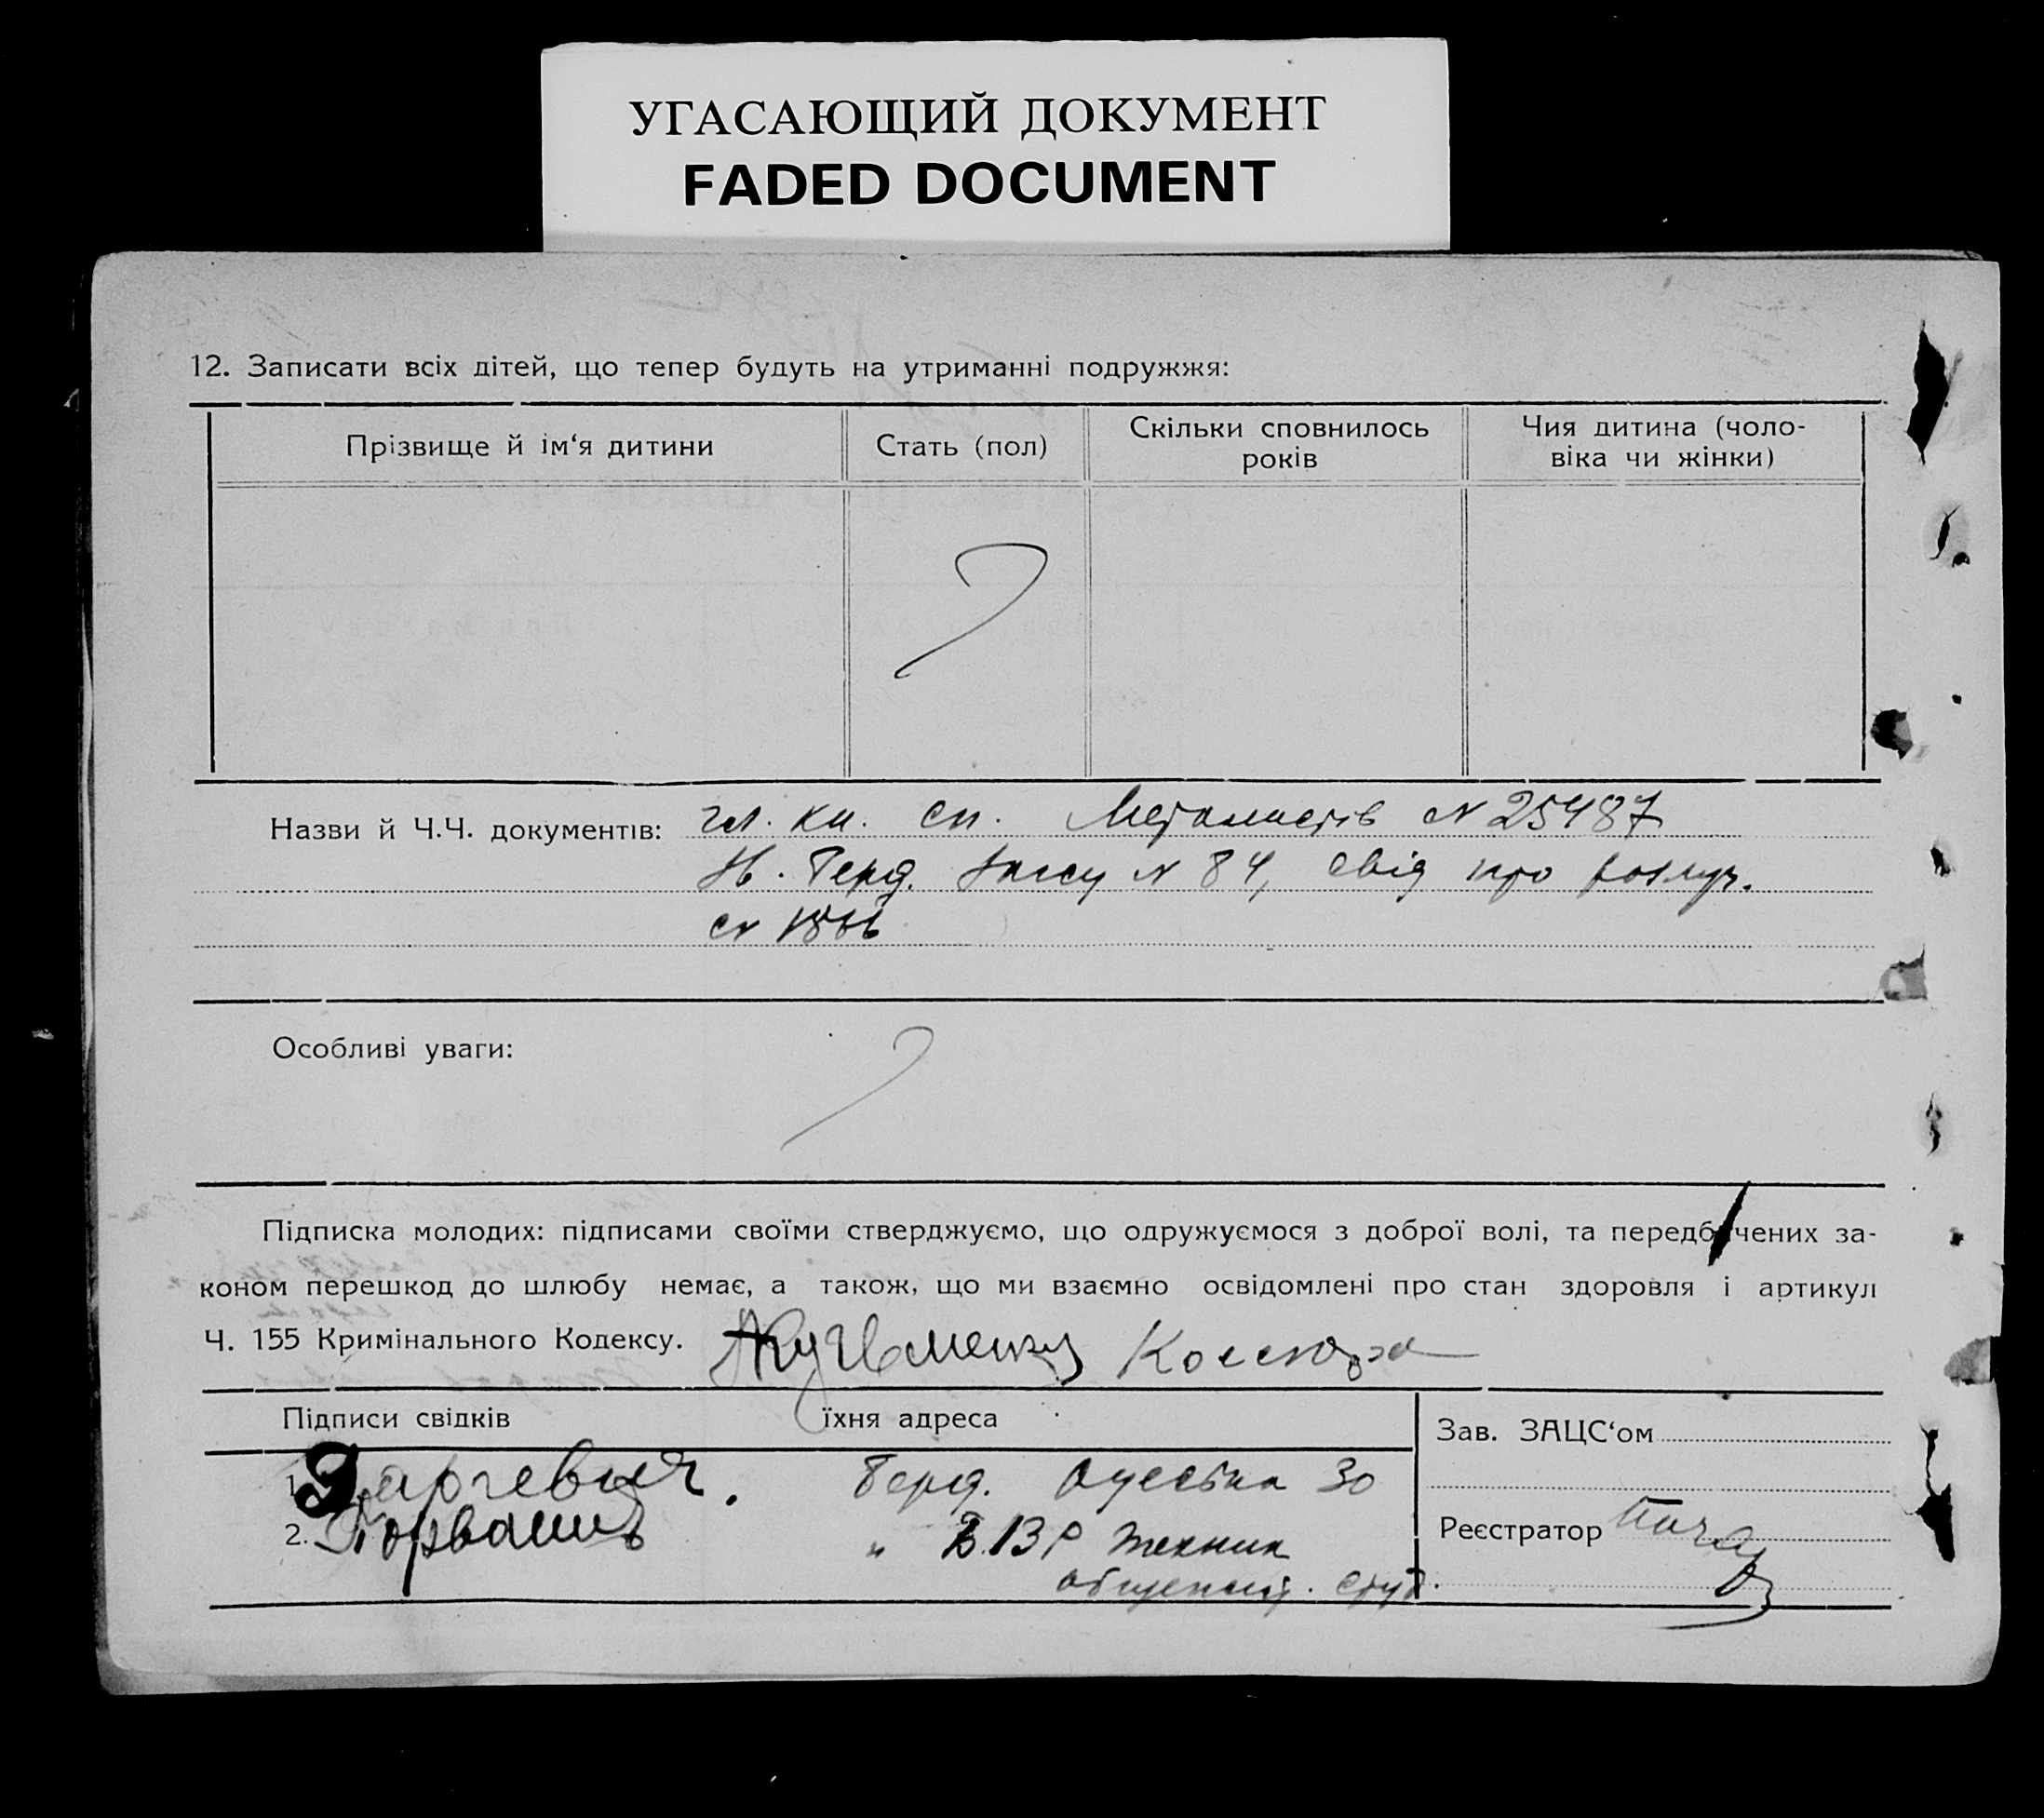 УГАСАЮЩИЙ ДОКУМЕНТ
FADED DOCUMENT
12. Записати всіх дітей, що тепер будуть на утриманні подружжя:
Прізвище й ім‘я дитини
Стать (пол)
Скільки сповнилось
років
Чия дитина (чоло-
віка чи жінки)
Назви й Ч.Ч. документів: чл. кн. сп. Металистів № 25487
№ 84, свід про розлуч.
№
Особливі уваги:
Підписка молодих: підписами своїми стверджуємо, що одружуємося з доброї волі, та передбачених за-
коном перешкод до шлюбу немає, а також, що ми взаємно освідомлені про стан здоровля і артикул
Ч. 155 Кримінального Кодексу.
Підписи свідків
їхня адреса
Зав. ЗАЦС‘ом
1. Берд. 30
2. " технік
студ.
Реєстратор